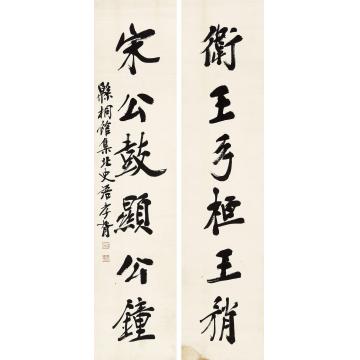 衛王弓桓王矟
宋公鼓顯公鐘
縣桐館集北史語孝胥